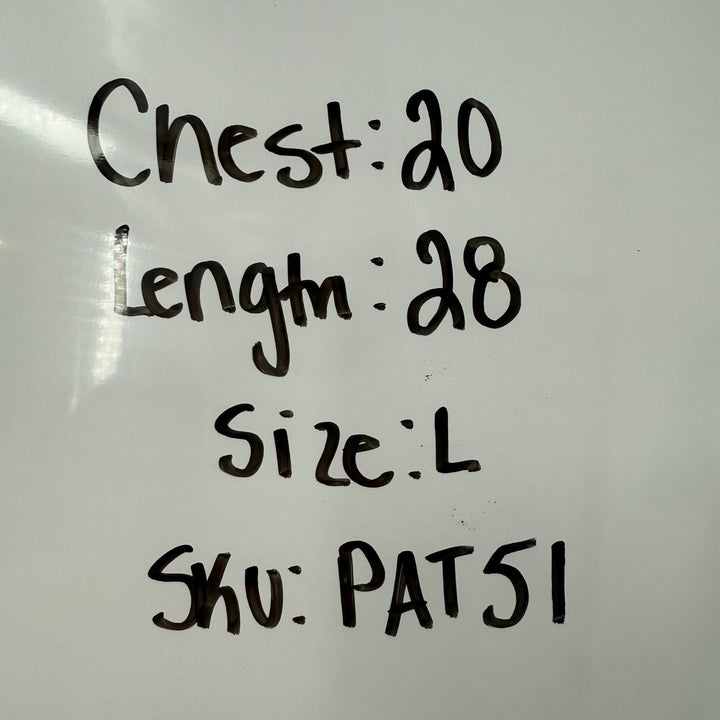 Chest: 20
Length: 28
Size: L
SKU: PAT51